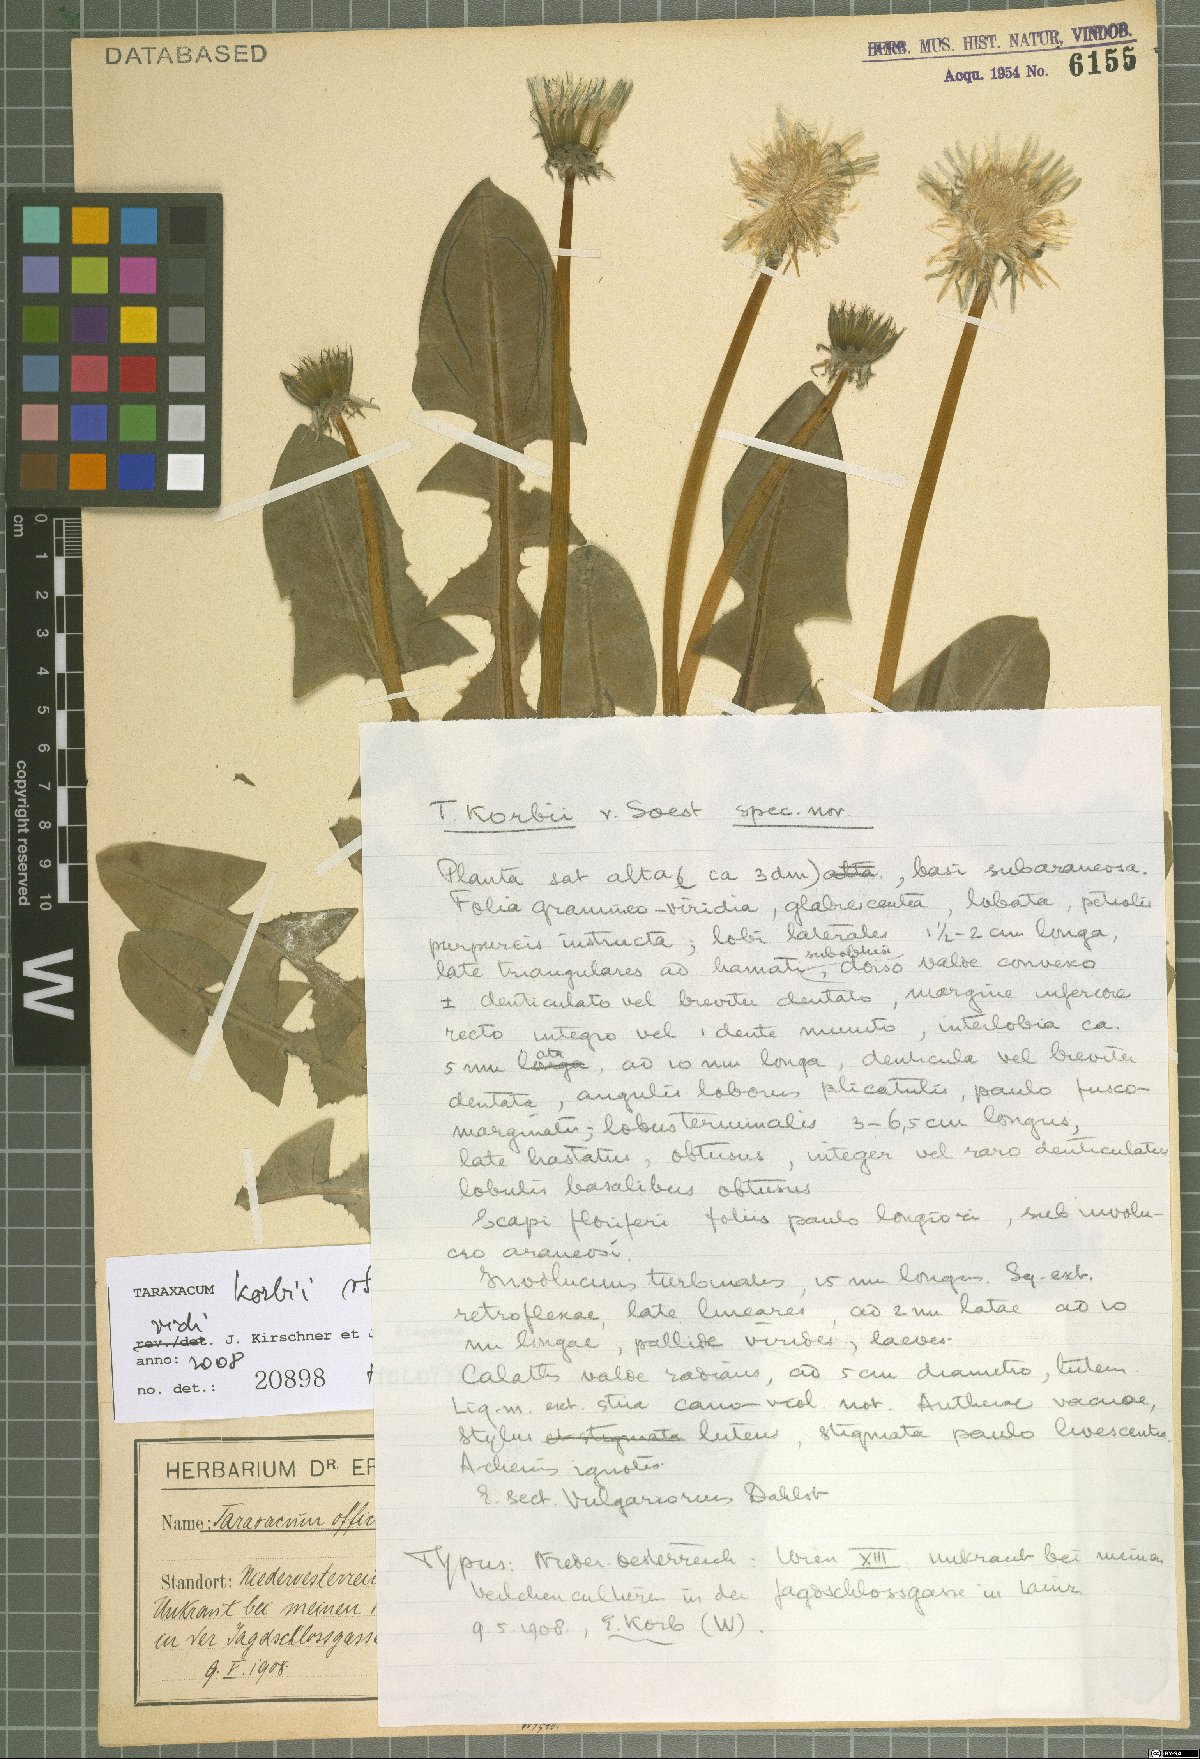 DATABASED
HERB. MUS. HIST. NATUR. VINDOB.
Acqu. 1954 No. 6155
cm
0
1
2
3
4
5
6
7
8
9
10
copyright reserved
W
T. Korbii v. Soest spec. nov.
Planta sat alta ( ca 3 dm) alta , basi subaraneosa.
Folia gramineo-viridia, glabrescentia, lobata, petiolis
purpureis instructa; lobi laterales 1½-2 cm longa,
late triangulares ad hamati, subobtusi, dorso valde convexo
± denticulato vel breviter dentato, margine inferiore
recto integro vel 1 dente munito, interlobia ca.
5 mm longa lata, ad 10 mm longa, denticula vel breviter
dentata, angulis loborum plicatulis, paulo fusco-
marginatis; lobus terminalis 3-6,5 cm longus,
late hastatus, obtusus, integer vel raro denticulatus
lobulis basalibus obtusis
Scapi floriferi foliis paulo longiori, sub involu-
cro araneosi.
Involucrum turbinatus, 15 mm longus. Sq. ext.
retroflexae, late lineares, ad 2 mm latae ad 10
mm longae, pallide virides, laeves.
Calath. valde radians, ad 5 cm diametro, luteum
Lig. m. ext. stria cano-viol. not. Antherae vacuae,
stylus et stigmata luteus, stigmata paulo livescentia.
Achenis ignotis.
E. sect. Vulgariorum Dahlst
Typus: Nieder. Oesterreich: Wien XIII Unkraut bei meinen
Veilchenculturen in der Jagdschlossgasse in Lainz
9.5.1908., E. Korb (W).
TARAXACUM korbii
vidi
rev./det. J. Kirschner et
anno: 2008
no. det.: 20898
HERBARIUM DR. ER
Name: Taraxacum offic
Standort: Niederoesterrei
Unkraut bei meinen
in der Jagdschlossgasse
9. V. 1908.